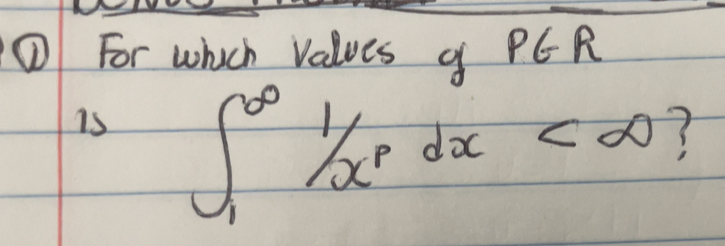 ① For which values of P∈R
is ∫₁^∞ 1/x^p dx < ∞?